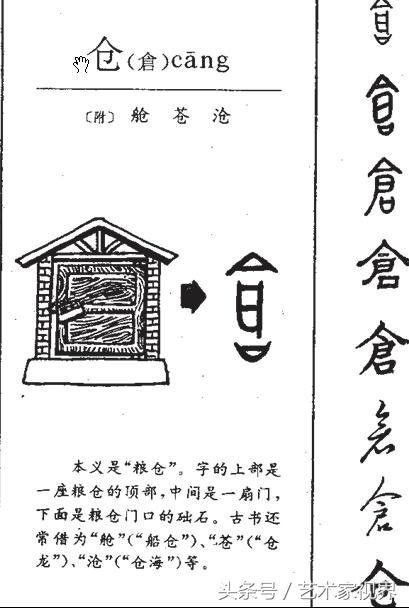 仓(倉)cāng
〔附〕 舱 苍 沧
本义是“粮仓”。字的上部是
一座粮仓的顶部,中间是一扇门,
下面是粮仓门口的础石。古书还
常借为“舱”(“船仓”)、“苍”(“仓
龙”)、“沧”(“仓海”)等。
倉
倉
倉
倉
仓
头条号 / 艺术家视界